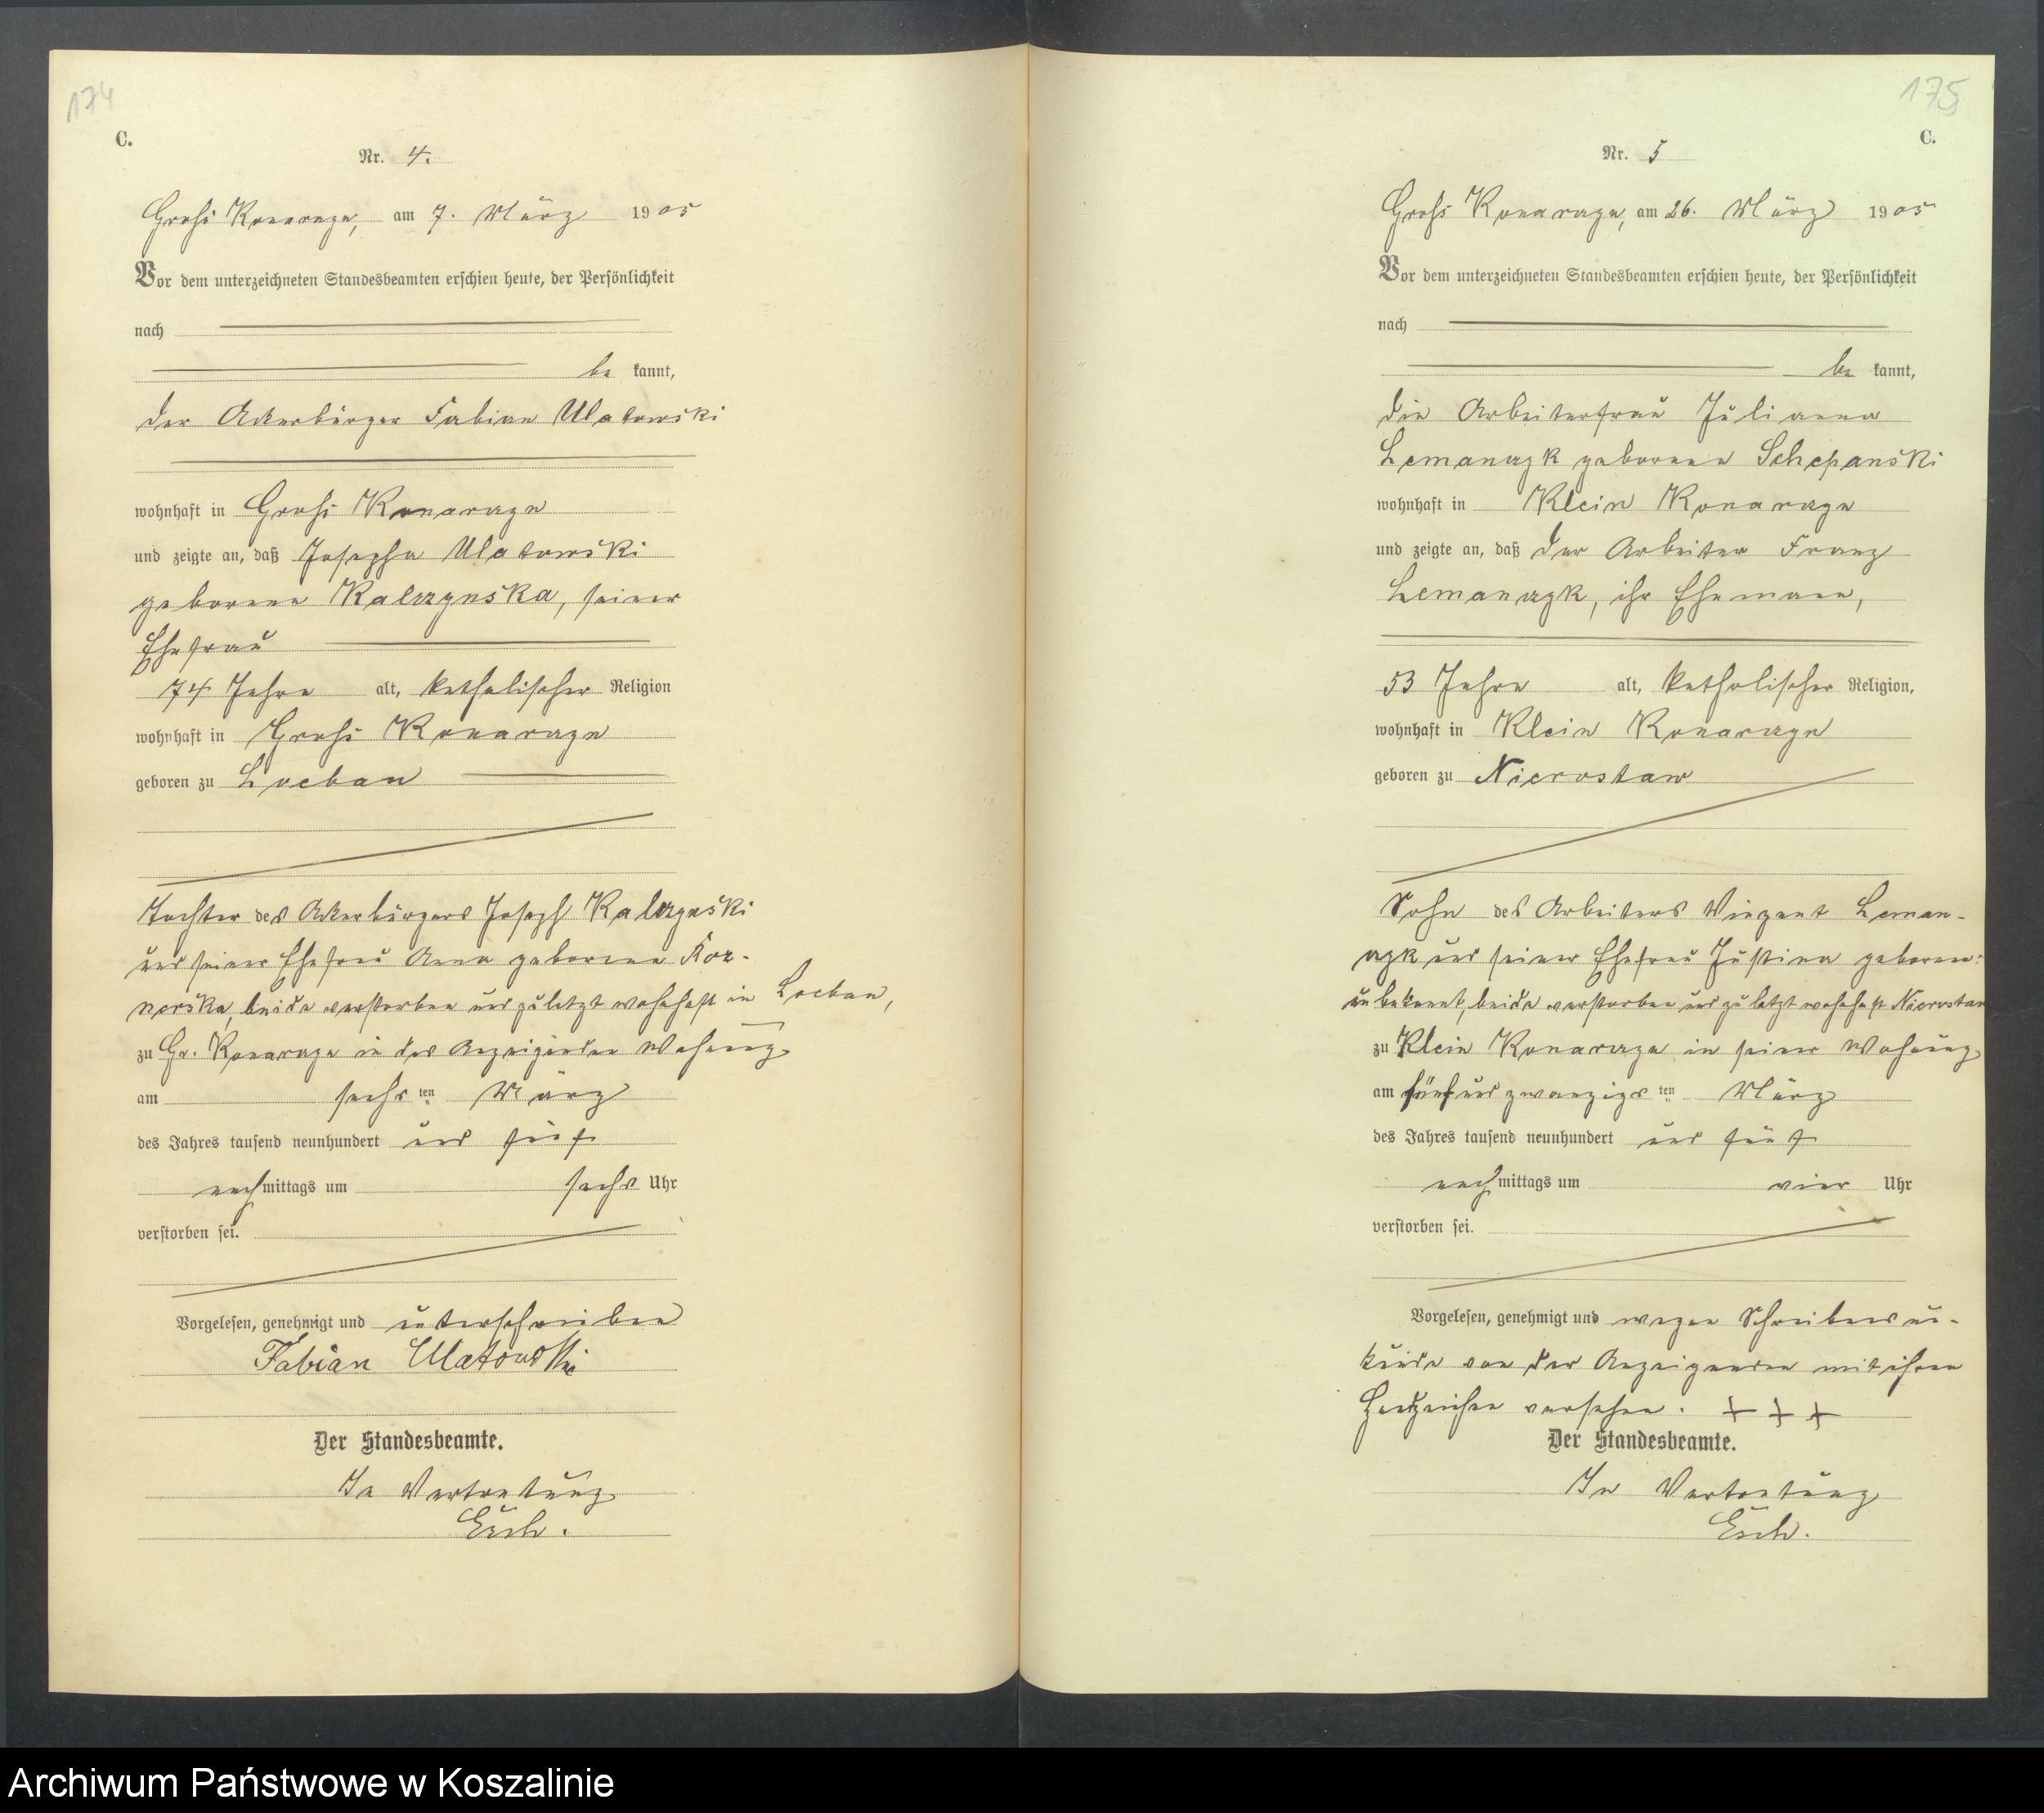 174
C.
Nr. 4.
Groß Konarczyn, am 7. März 1905
Vor dem unterzeichneten Standesbeamten erschien heute, der Persönlichkeit
nach
be kannt,
der Ackerbürger Fabian Ulatowski
wohnhaft in Groß Konarczyn
und zeigte an, daß Josepha Ulatowski
geborene Kalczynska, seiner
Ehefrau
74 Jahre alt, katholischer Religion
wohnhaft in Groß Konarczyn
geboren zu Loeban
Tochter des Ackerbürgers Joseph Kalczynski
und seiner Ehefrau Anna geborene Koz-
nerska, beide verstorben und zuletzt wohnhaft in Loeban,
zu Gr. Konarczyn in des Anzeigenden Wohnung
am sechsten März
des Jahres tausend neunhundert und fünf
nachmittags um sechs Uhr
verstorben sei.
Vorgelesen, genehmigt und unterschrieben
Fabian Ulatowski
Der Standesbeamte.
In Vertretung
Esch.
175
C.
Nr. 5
Groß Konarczyn, am 26. März 1905
Vor dem unterzeichneten Standesbeamten erschien heute, der Persönlichkeit
nach
be kannt,
die Arbeiterfrau Julianna
Lemanczyk geborene Schepanski
wohnhaft in Klein Konarczyn
und zeigte an, daß der Arbeiter Franz
Lemanczyk, ihr Ehemann,
53 Jahre alt, katholischer Religion,
wohnhaft in Klein Konarczyn
geboren zu Nierostaw
Sohn des Arbeiters Vinzent Leman-
czyk und seiner Ehefrau Justina geboren:
unbekannt, beide verstorben und zuletzt wohnhaft Nierostaw
zu Klein Konarczyn in seiner Wohnung
am fünfundzwanzigsten März
des Jahres tausend neunhundert und fünf
nachmittags um vier Uhr
verstorben sei.
Vorgelesen, genehmigt und wegen Schreibensun-
kunde von der Anzeigenden mit ihren
Handzeichen versehen. + + +
Der Standesbeamte.
In Vertretung
Esch.
Archiwum Państwowe w Koszalinie